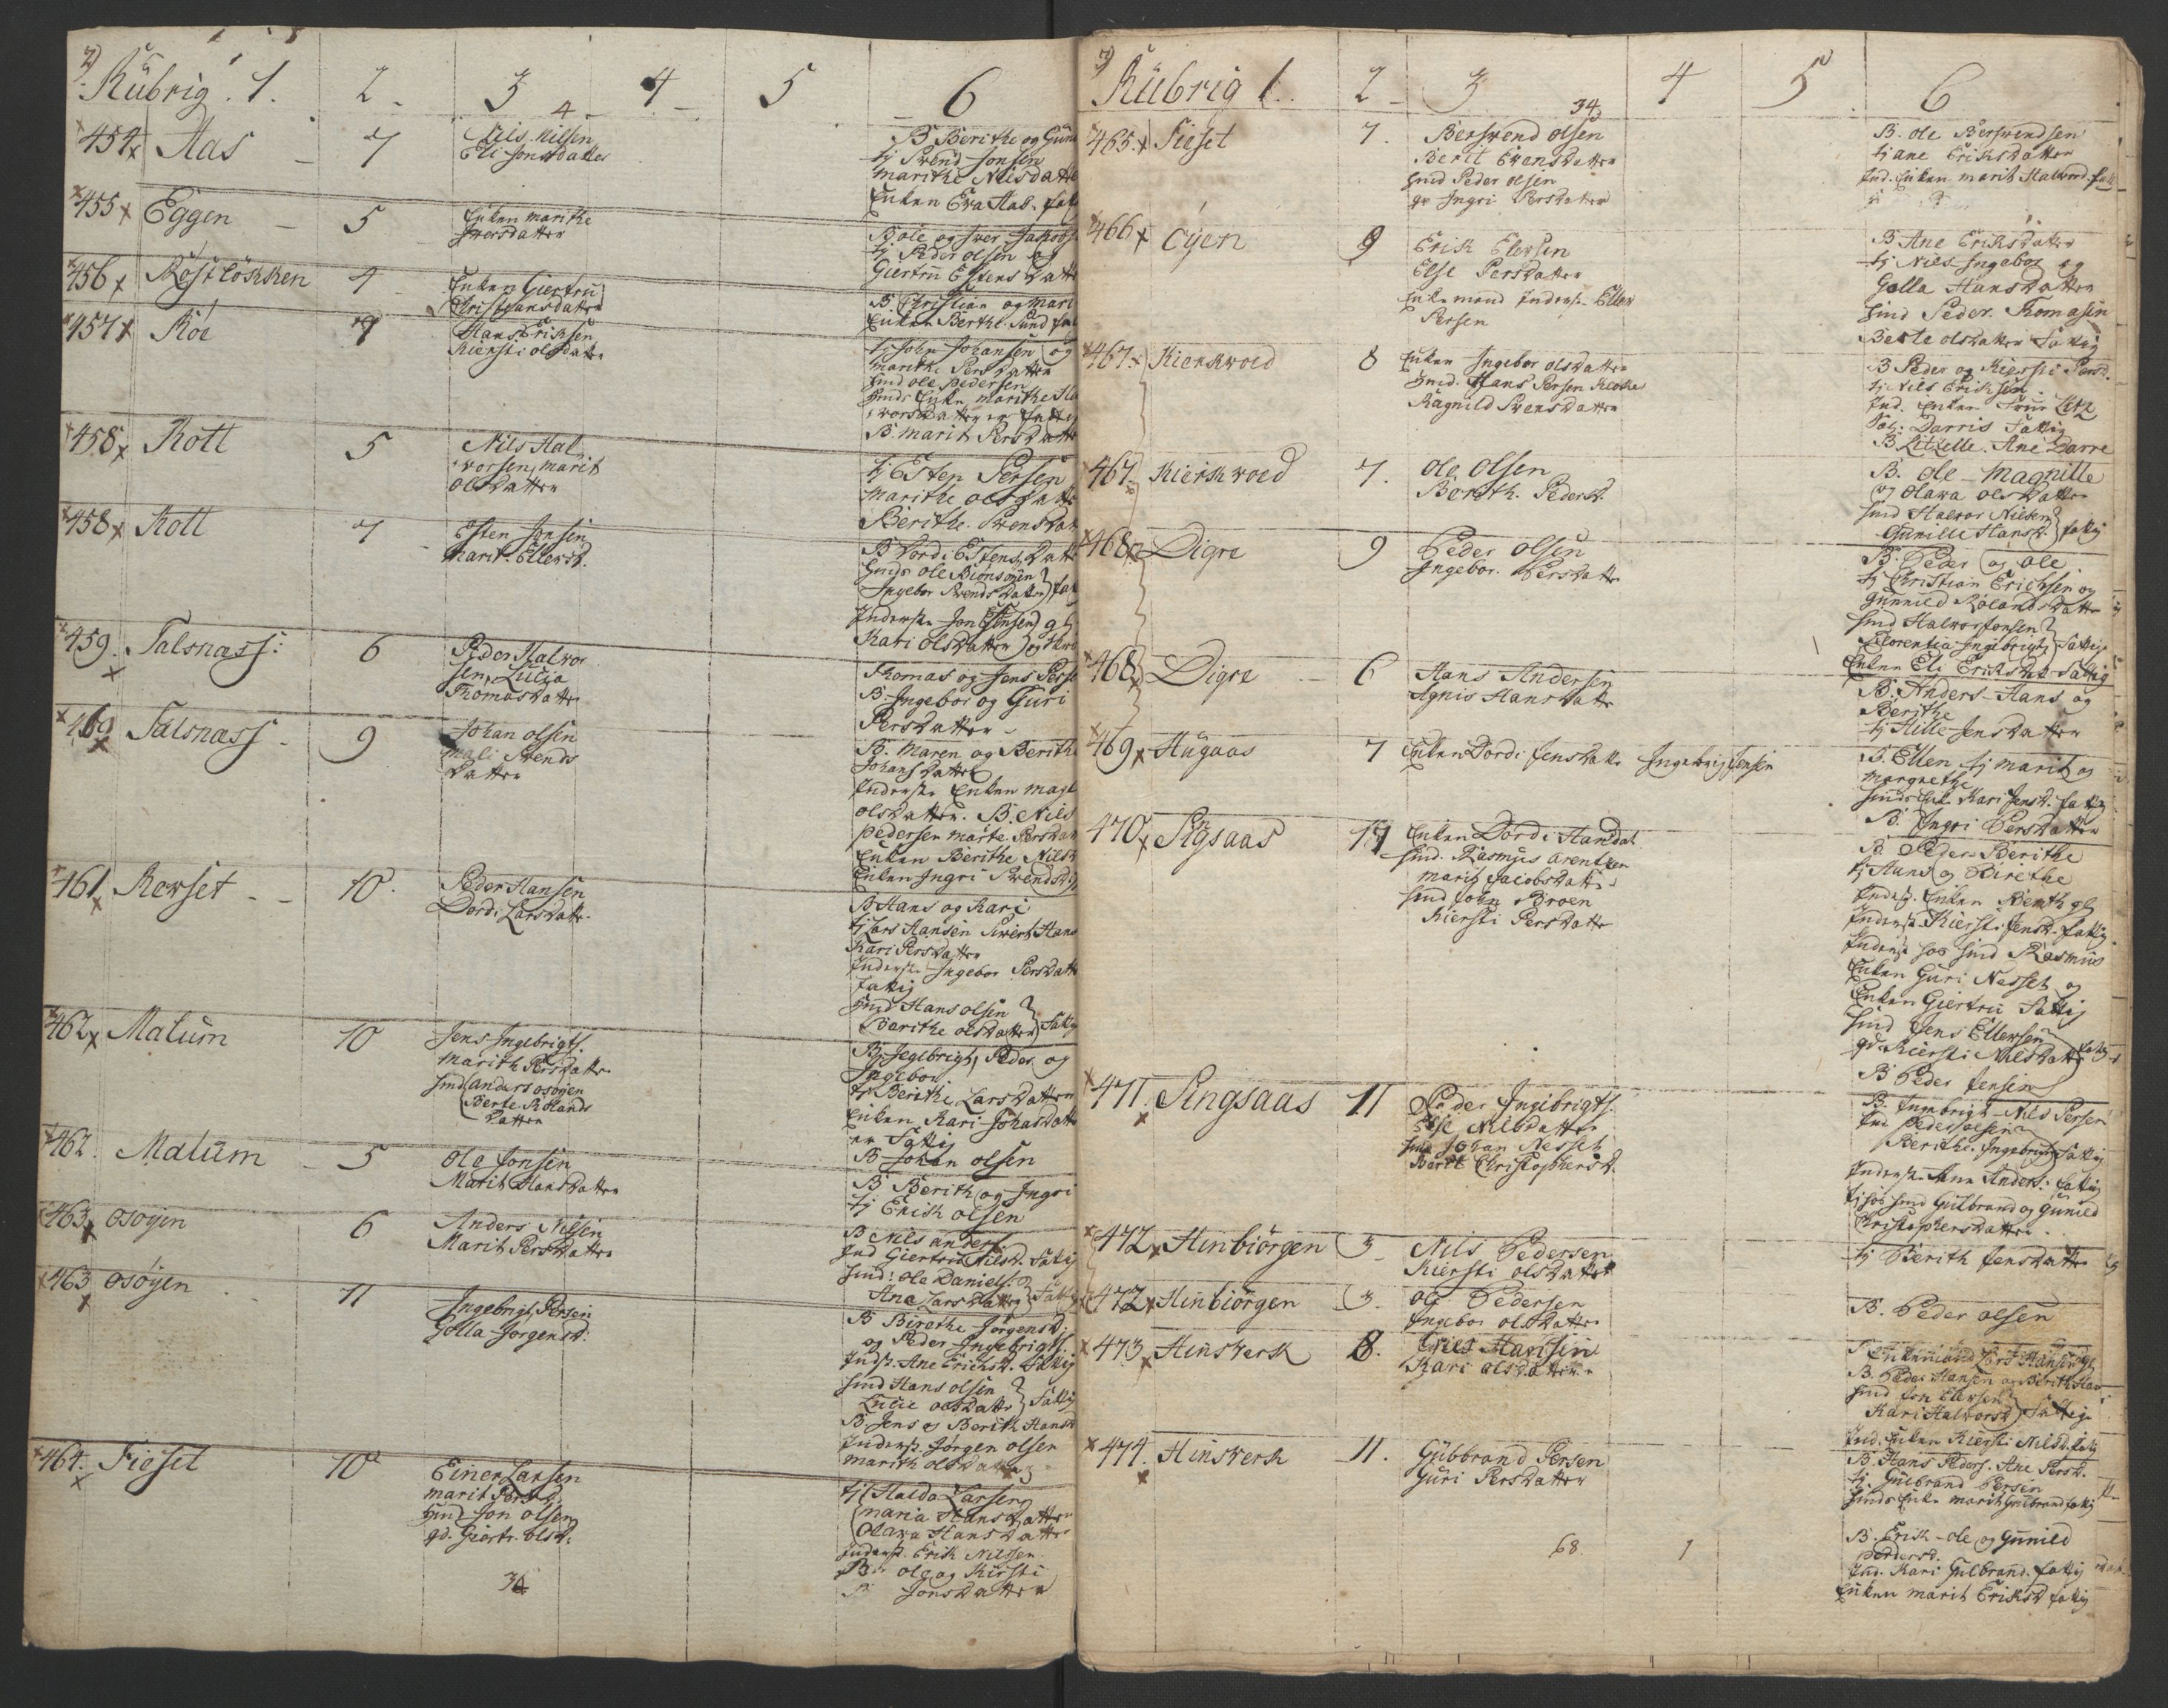 2)
Rübrig. 1. 2 - 3 4 - 5 6
4
454 Aas - 7 Nils Nilsen
Eli Jonsdatter
B Berithe og Gün
tj Svend Jonsen
Marithe Nilsdatte
Enken Eva Aas. fat
455 Eggen - 5 Enken Marithe
Iversdatter
B Ole og Iver Jakobs
tj Peder Olsen og
Giertrü Estens Datt
456 Röstlökken 4 Enken Giertrü
Christjansdatter
B Christian og Mari
Enken Berthe Sund fat
457 Roe 9 Hans Eriksen
Kiersti Olsdatr
tj John Johansen og
Marithe Persdatter
Hmd Ole Pedersen
Hmds Enke Marithe Ha
vorsdatter er fattig
B. Marit Persdatte
458 Kott 5 Nils Hal
vorsen, Marit
Olsdatter
tj Esten Persen
Marithe Olsdatt
Berithe Svensdat
458 Kott 7 Esten Jonsen
Marit Ellevsd.
B Dordi Estensdatt
Hmds Ole Biönsöyen
Ingebor Svendsdatter fat
Inderste Jon Estensen gl
Kari Olsdatter og skrö
459. Talsnass: 6 Peder Halvor
sen, Lucia
Thomasdatte
Thomas og Jens Perse
B Ingebor og Güri
Persdatter
469 Talsnass - 9 Johan Olsen
Mali Svends
datter
B. Maren og Berith
Johansdatter
Inderste Enken Magl
Olsdatter. B. Nils
Pedersen Marte Persdat
Enken Berithe Nilsd
Enken Ingri Svendsd
461 Rovset - - 10. Peder Hansen
Dordi Larsdatt.
B Hans og Kari
tj Lars Hansen Sivert Hans
Kari Persdatter
Inderste Ingebor Persdatt
fattig
Hmd Hans Olsen
Barithe Olsdatter fattig
462 Malum 10 Jens Ingebrigts.
Marith Persdatr.
Hmd Anders Osöyen
Berte Rolands
datter
B. Ingebrigt, Peder og
Ingebor
tj Berithe Larsdatter
Enken Kari Johasdatt
er Fattig
B Johan Olsen
462. Malüm - 5 Ole Jonsen
Marit Hansdatter
B Berith og Ingri
tj Erich Olsen
463 Osoyen 6 Anders Nilsen
Marit Persdatter
B Nils Anders
Ind Giertru Nilsd. fattig
Hmd: Ole Daniels:
Ane Larsdatter fatt
463 Osöyen 11 Ingebrigt Persen
Golla Jorgensd:
B Birethe Jörgensd:
og Peder Ingebrigts.
Indst. Ane Erichsd. fattig
Hmd Hans Olsen
Lucie Olsdatte fattig
B. Jens og Berith Hansd
Inderst. Jörgen Olsen
Marith Olsdatter
464. Fioset 10 Einer Larsen
Marit Persd:
Hmd Jon Olsen
qd. Giertr. Olsd:
tj Halda Larsen
Maria Hansdatter
Olava Hansdatter
Inderst. Erik Nilssen
B: Ole og Kirsti
Jonsdatter
34
3)
Rübrig 1. 2 - 3 4 5 6
34
465. Fioset 7. Bersvend Olsen
Berit Evensdatter
Hmd Peder Olsen
qv Ingri Persdatter
B. Ole Bersvendsen
tj Ane Eriksdatter
Ind. Enken Marit Halvord fatt
466 Öyen 9 Erik Elevsen
Else Persdatter
Enkemand Inderste Ellev
Persen
B Ane Eriksdatter
tj Nils Ingebor og
Golla Hansdatter
Hmd Peder Thomasen
Berte Olsdatter Fattig
467 Kierkvold 8 Enken Ingebor Olsdatter
Hmd. Hans Persen Klokke
Ragnild Svensdatter
B Peder og Kiersti Persd.
tj Nils Eriksen
Ind. Enken Frue Litz
Darris Fattig
B Litzelle. Ane Darre
467. Kierkvold 7. Ole Olsen
Bereth. Pedersd.
B. Ole - Magnille
og Olava Olsdatter
Hmd Halvor Nilsen
Günille Hansd. fattig
468 Digre 9 Peder Olsen
Ingebor. Persdatter
B. Peder og Ole
tj Christian Erichsen og
Günnild Rolandsdatter
Hmd Halvor Jonsen
Florentia Ingebrigts Fattig
Enken Eli Eriksdat Fattig
468 Digre - 6 Hans Andersen
Agnis Hansdatte
B. Anders - Hans og
Berithe
tj Hille Jensdatter
469 Haugaas 7 Enken Dordi Jensdatt. Ingebrigt Jensen
B. Ellen tj Marit og
Margrethe
Hmds Enk. Kari Jensd. fattig
B. Ingri Persdatter
470 Singsaas 17 Enken Dordi Hansdat
Hmd. Rasmus Arentsen
Marit Jacobsdatte
Hmd John Broen
Kiersti Persdatte
B. Peder Berithe
tj Hans og Direthe
Inderst. Enken Berith gl
Inderst. Kiersti Jensd. fattig
Inderst hos Hmd Rasmüs
Enken Güri Nesset og
Enken Giertrü Fattig
Hmd Jens Ellevsen
qd. Kiersti Nilsdatt fattig
B Peder Jensen
471. Singsaas 11 Peder Ingebrigts.
Else Nilsdatter
Hmd Johan Nesset
Berit Christophersd.
B. Ingebrigt - Nils Persen
Ind Peder Olsen
Berithe Ingebrigts fattig
Inderste Ann Anders: fattig
tj hos Hmd Gülbrand og Günild
Christophersdatter
472 Hinbiörgen 3 Nils Pedersen
Kiersti Olsdatter
tj Berith Jensdatter
472 Hinbiörgen 3. Ole Pedersen
Ingebor Olsdatter
B. Peder Olsen
473 Hinsverk 8. Hansen
Kari Olsdatter
Enkemand Lars Hansen gl
B. Peder Hansen og Berith Han
Hmd Jon Elevsen
Kari Halvorsd Fattige
Ind. Enken Kiersti Nilsd. fattig
474. Hinsverk 11. Gulbrand Persen
Guri Persdatter
B. Hans Peders. Ane Persd.
tj. Gülbrand Persen
Hmds Enke Marit Gulbrand fattig
B. Erik - Ole og Günild
Pedersd.
Ind. Kari Gulbrand. fattig
Enken Marit Eriksd fattig
68. 1